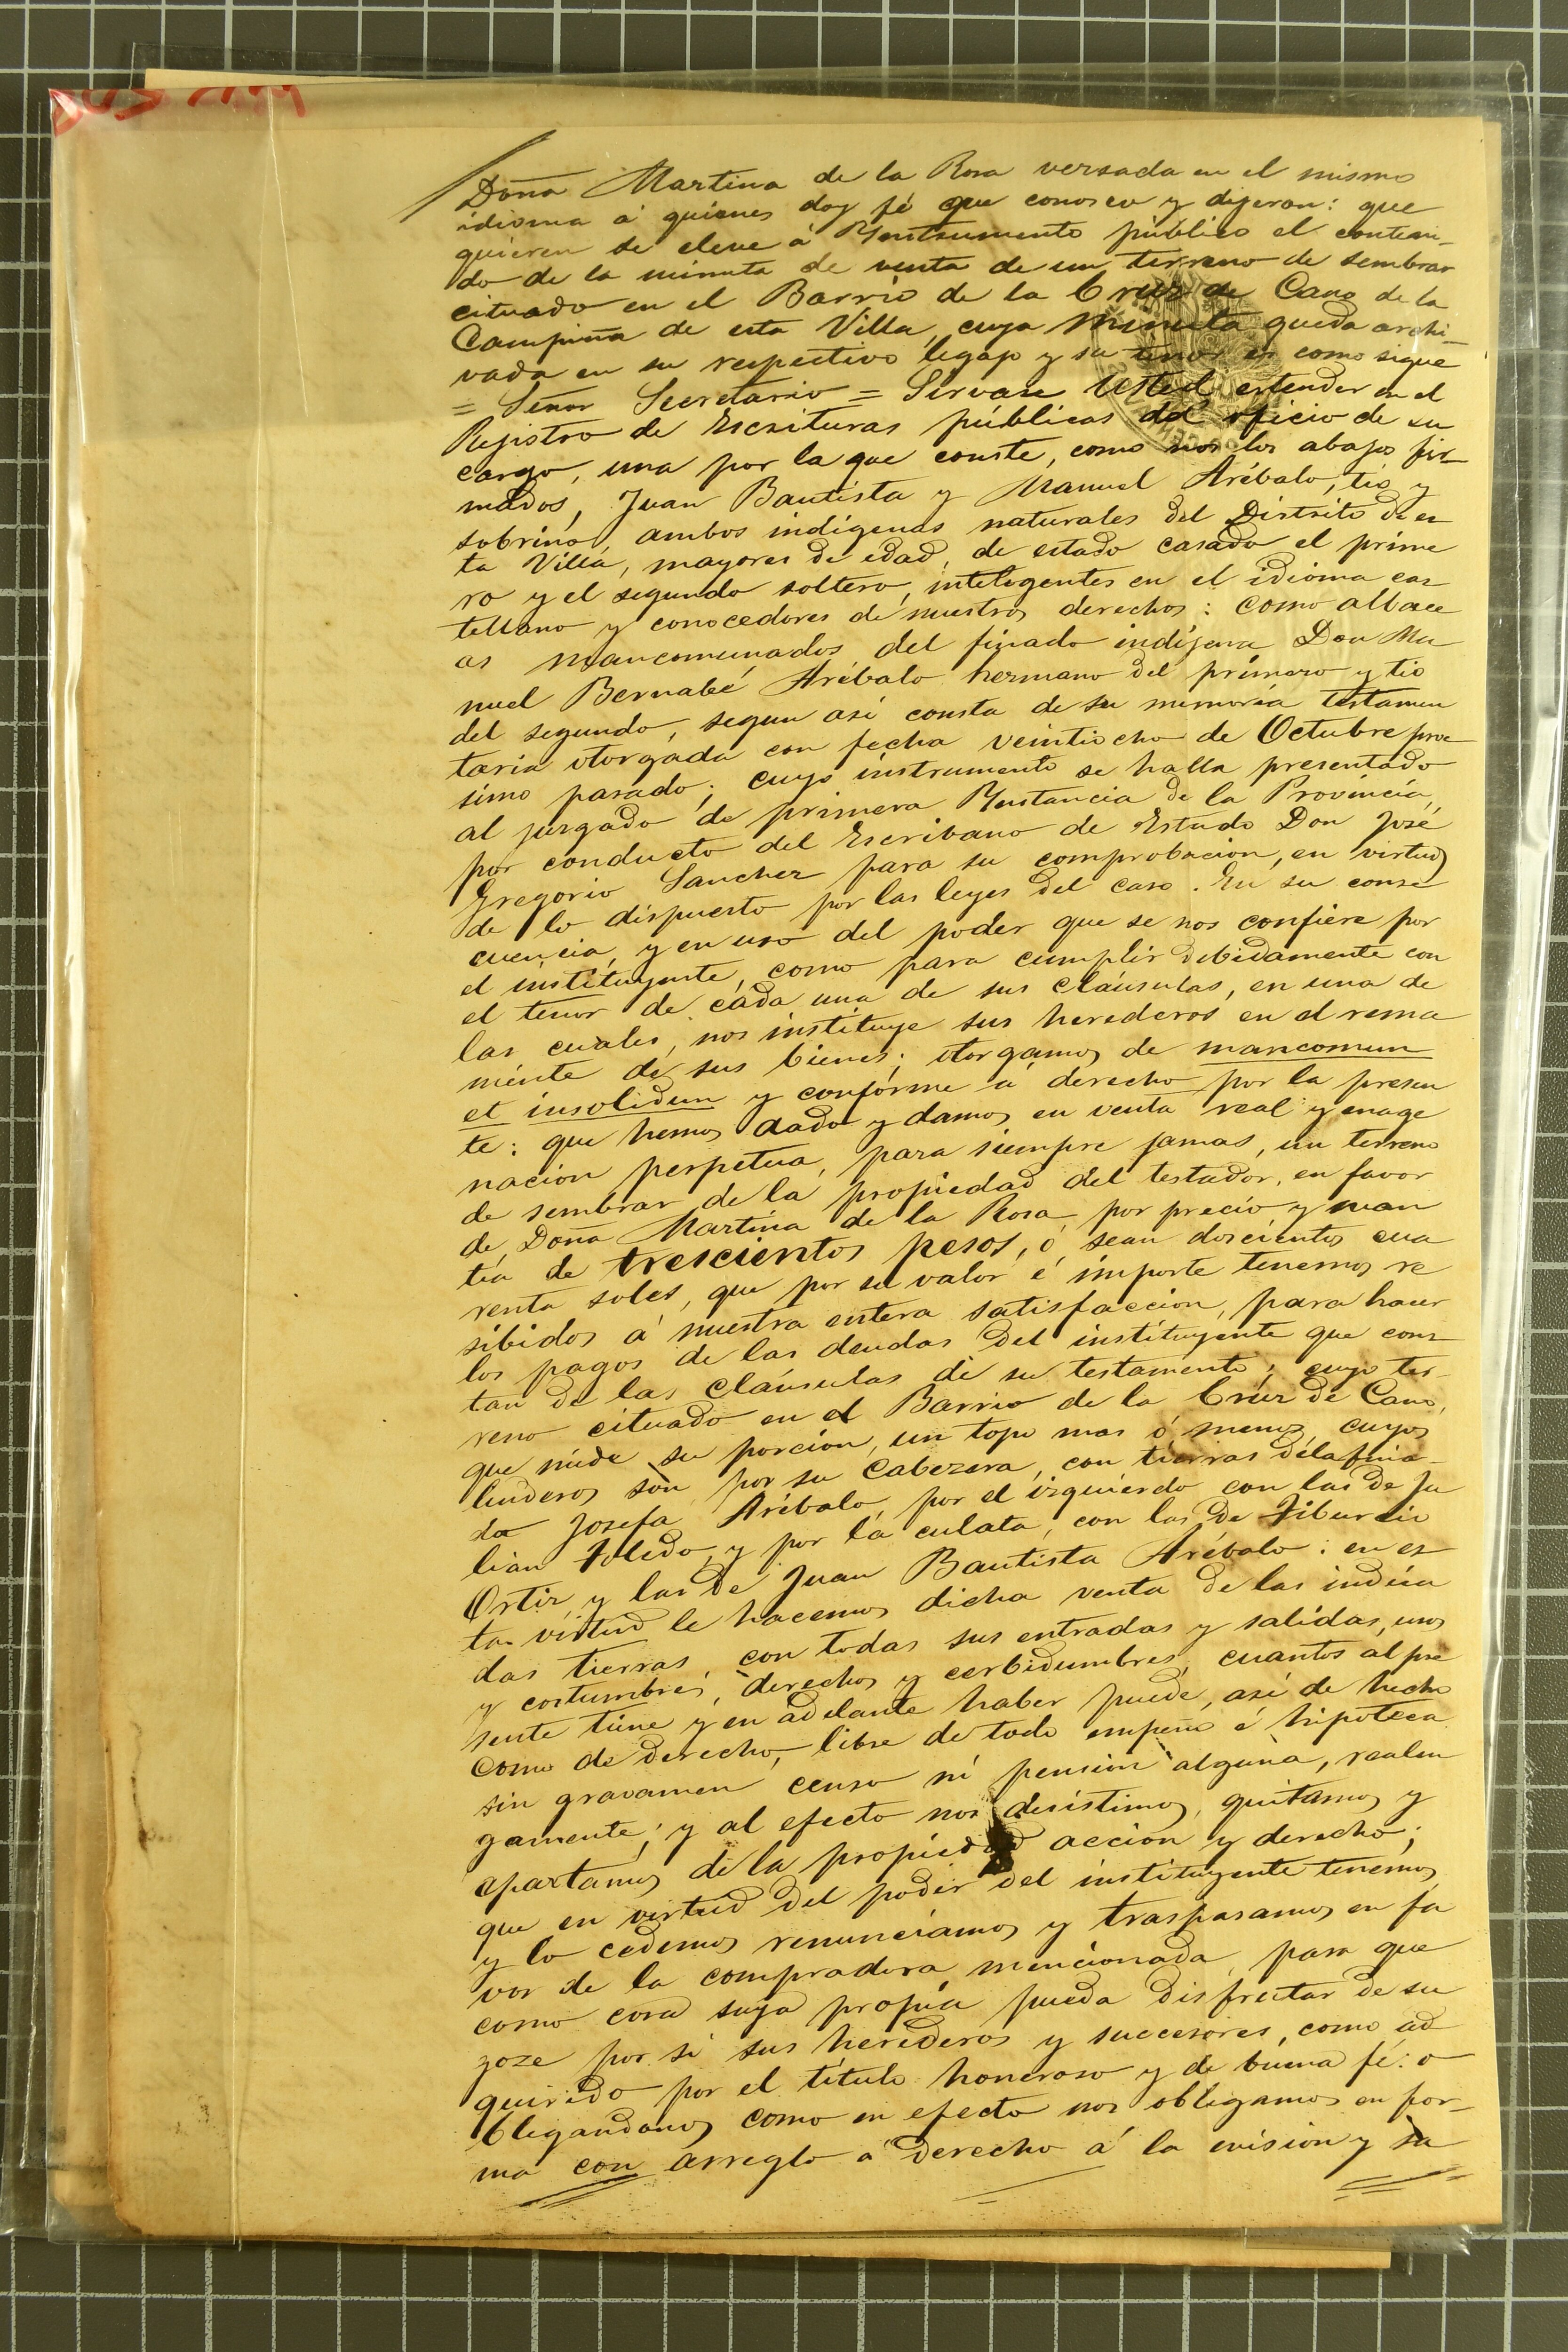 Doña Martina de la Rosa versada en el mismo
idioma á quienes doy fé que conosco y digeron: que
quieren se eleve á Ynstrumento público el conteni-
do de la minuta de venta de un terreno de sembrar
cituado en el Barrio de la Cruz de Cano de la
Campiña de esta Villa, cuya minuta queda archi-
vada en su respectivo legajo y su tenor es como sigue
= Señor Secretario = Sirvase Usted estender en el
Rejistro de Escrituras públicas del oficio de su
cargo, una por la que conste, como nos los abajos fir-
mados, Juan Bautista y Manuel Arébalo, tio y
sobrino, ambos indígenas naturales del Distrito de es
ta Villa, mayores de edad, de estado casado el prime
ro y el segundo soltero, inteligentes en el idioma cas
tellano y conocedores de nuestros derechos: como albace
as mancomunados del finado indígena Don Ma
nuel Bernabé Arébalo hermano del primero y tio
del segundo, segun asi consta de su memoria testamen
taria otorgada con fecha veintiocho de Octubre proc
simo pasado; cuyo instrumento se halla presentado
al jusgado de primera Ynstancia de la Provincia,
por conducto del Escribano de Estado Don José
Gregorio Sanchez para su comprobacion, en virtud
de lo dispuesto por las leyes del caso. En su conse
cuencia, y en uso del poder que se nos confiere por
el instituyente, como para cumplir debidamente con
el tenor de cada una de sus cláusulas, en una de
las cuales, nos instituye sus herederos en el rema
niente de sus bienes; otorgamos de mancomun
et insolidun y conforme á derecho por la presen
te: que hemos dado y damos en venta real y enage
nacion perpetua, para siempre jamas, un terreno
de sembrar de la propiedad del testador, en favor
de Doña Martina de la Rosa, por precio y cuan
tia de trescientos pesos, ó sean doscientos cua
renta soles, que por su valor é importe tenemos re
sibidos á nuestra entera satisfaccion, para hacer
los pagos de las deudas del instituyente que cons
tan de las cláusulas de su testamento; cuyo ter-
reno cituado en el Barrio de la Cruz de Cano,
que mide su porcion, un topo mas ó menos, cuyos
linderos son por su Cabezera, con tierras de la fina-
da Josefa Arébalo, por el izquierdo con las de Ju
lian Toledo, y por la culata, con las de Tiburcio
Ortiz y las de Juan Bautista Arébalo: en es
ta virtud le hacemos dicha venta de las indica
das tierras, con todas sus entradas y salidas, usos
y costumbres, derechos y cerbidumbres, cuantos al pre
sente tiene y en adelante haber puede, asi de hecho
como de derecho, libre de todo empeño é hipoteca
sin gravamen censo ni pension alguna, realen
gamente; y al efecto nos desistimos, quitamos y
apartamos de la propiedad accion y derecho;
que en virtud del poder del instituyente tenemos,
y lo cedemos renunciamos y traspasamos en fa
vor de la compradora mencionada, para que
como cosa suya propia pueda disfrutar de su
goze por si sus herederos y succesores, como ad
quirido por el título honeroso y de buena fé: o
bligandonos como en efecto nos obligamos en for-
ma con arreglo á derecho á la evision y sa